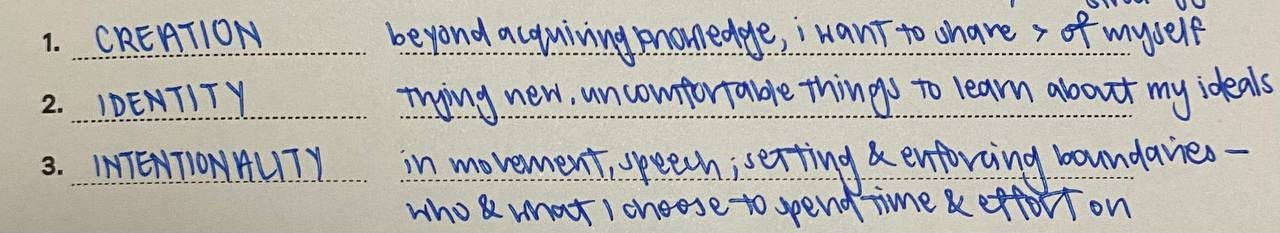 1. CREATION beyond acquiring knowledge, i want to share > of myself
2. IDENTITY trying new, uncomfortable things to learn about my ideals
3. INTENTIONALITY in movement, speech; setting & enforcing boundaries –
who & what I choose to spend time & effort on